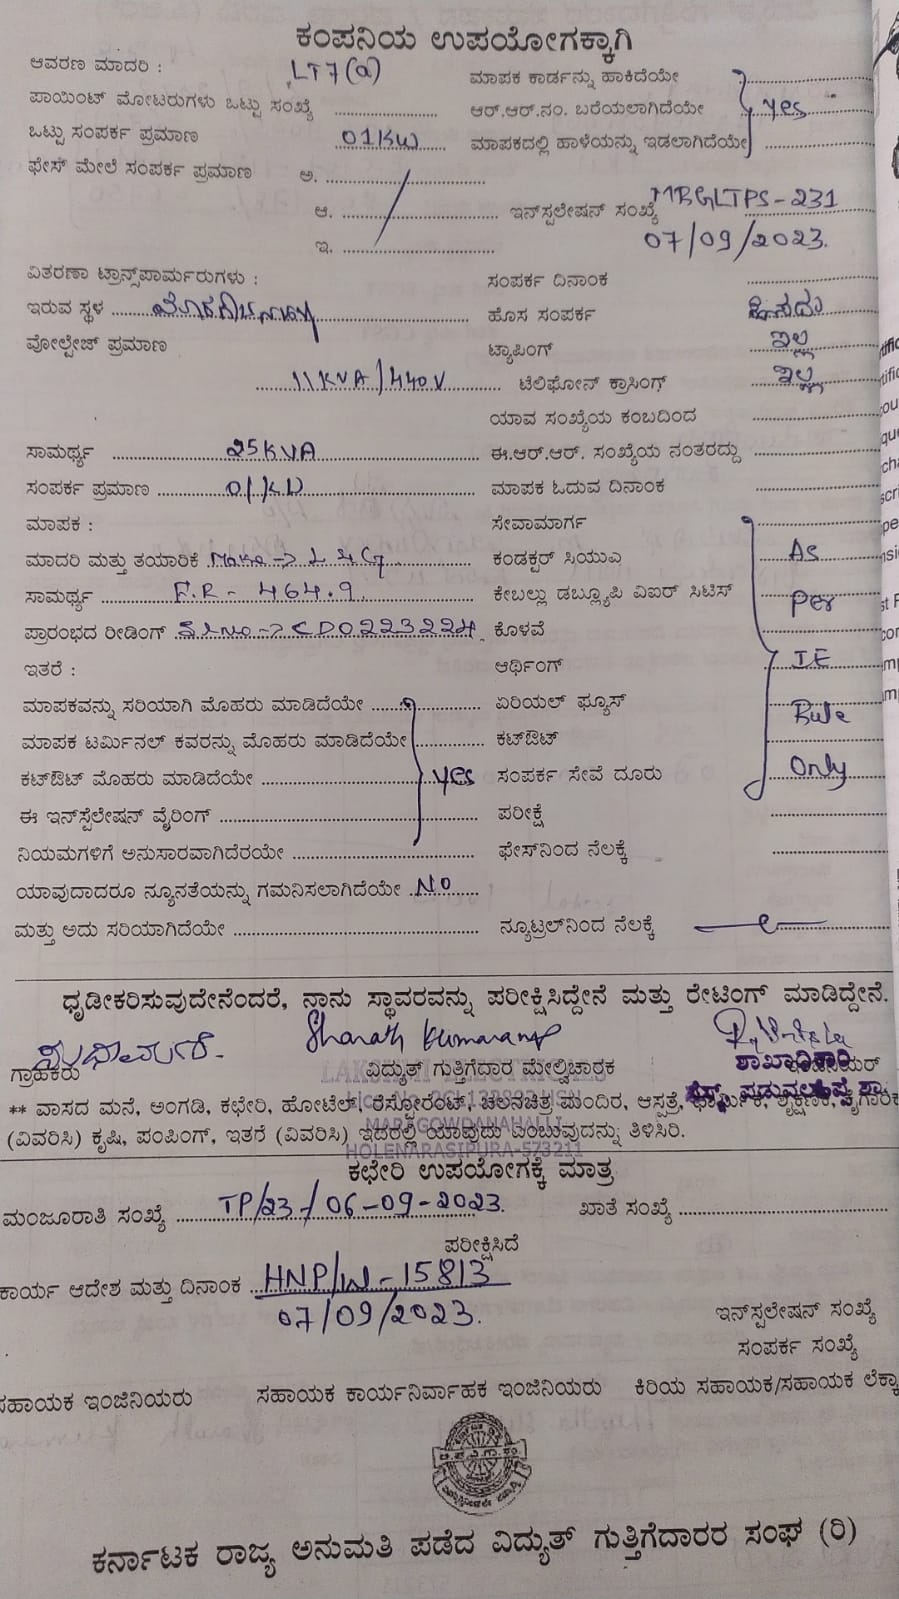 ಕಂಪನಿಯ ಉಪಯೋಗಕ್ಕಾಗಿ
ಆವರಣ ಮಾದರಿ : LT7(a) ಮಾಪಕ ಕಾರ್ಡನ್ನು ಹಾಕಿದೆಯೇ
ಪಾಯಿಂಟ್ ಮೋಟರುಗಳು ಒಟ್ಟು ಸಂಖ್ಯೆ ಆರ್.ಆರ್.ನಂ. ಬರೆಯಲಾಗಿದೆಯೇ yes
ಒಟ್ಟು ಸಂಪರ್ಕ ಪ್ರಮಾಣ 01KW ಮಾಪಕದಲ್ಲಿ ಹಾಳೆಯನ್ನು ಇಡಲಾಗಿದೆಯೇ
ಫೇಸ್ ಮೇಲೆ ಸಂಪರ್ಕ ಪ್ರಮಾಣ ಅ.
ಆ. ಇನ್‌ಸ್ಪಲೇಷನ್ ಸಂಖ್ಯೆ MRGLTPS-231
ಇ. 07/09/2023.
ವಿತರಣಾ ಟ್ರಾನ್ಸ್‌ಪಾರ್ಮರುಗಳು : ಸಂಪರ್ಕ ದಿನಾಂಕ
ಇರುವ ಸ್ಥಳ ಹೊಸ ಸಂಪರ್ಕ ಹೊಸದು
ವೋಲ್ಟೇಜ್ ಪ್ರಮಾಣ ಟ್ಯಾಪಿಂಗ್ ಇಲ್ಲ
11KVA/440V ಟೆಲಿಫೋನ್ ಕ್ರಾಸಿಂಗ್ ಇಲ್ಲ
ಯಾವ ಸಂಖ್ಯೆಯ ಕಂಬದಿಂದ
ಸಾಮರ್ಥ್ಯ 25KVA ಈ.ಆರ್.ಆರ್. ಸಂಖ್ಯೆಯ ನಂತರದ್ದು
ಸಂಪರ್ಕ ಪ್ರಮಾಣ ಮಾಪಕ ಓದುವ ದಿನಾಂಕ
ಮಾಪಕ : ಸೇವಾಮಾರ್ಗ
ಮಾದರಿ ಮತ್ತು ತಯಾರಿಕೆ Make → L &G ಕಂಡಕ್ಟರ್ ಸಿಯುಎ As
ಸಾಮರ್ಥ್ಯ F.R - 464.9 ಕೇಬಲ್ಲು ಡಬ್ಲ್ಯೂಪಿ ವಿಐರ್ ಸಿಟಿಸ್ Per
ಪ್ರಾರಂಭದ ರೀಡಿಂಗ್ Sl.No → CD0223224 ಕೊಳವೆ
ಇತರೆ : ಆರ್ಥಿಂಗ್ IE
ಮಾಪಕವನ್ನು ಸರಿಯಾಗಿ ಮೊಹರು ಮಾಡಿದೆಯೇ ಏರಿಯಲ್ ಫ್ಯೂಸ್ Rule
ಮಾಪಕ ಟರ್ಮಿನಲ್ ಕವರನ್ನು ಮೊಹರು ಮಾಡಿದೆಯೇ ಕಟ್‌ಔಟ್
ಕಟ್‌ಔಟ್ ಮೊಹರು ಮಾಡಿದೆಯೇ yes ಸಂಪರ್ಕ ಸೇವೆ ದೂರು Only
ಈ ಇನ್‌ಸ್ಪೆಲೇಷನ್ ವೈರಿಂಗ್ ಪರೀಕ್ಷೆ
ನಿಯಮಗಳಿಗೆ ಅನುಸಾರವಾಗಿದೆರಯೇ ಫೇಸ್‌ನಿಂದ ನೆಲಕ್ಕೆ
ಯಾವುದಾದರೂ ನ್ಯೂನತೆಯನ್ನು ಗಮನಿಸಲಾಗಿದೆಯೇ NO
ಮತ್ತು ಅದು ಸರಿಯಾಗಿದೆಯೇ ನ್ಯೂಟ್ರಲ್‌ನಿಂದ ನೆಲಕ್ಕೆ
ಧೃಡೀಕರಿಸುವುದೇನೆಂದರೆ, ನಾನು ಸ್ಥಾವರವನ್ನು ಪರೀಕ್ಷಿಸಿದ್ದೇನೆ ಮತ್ತು ರೇಟಿಂಗ್ ಮಾಡಿದ್ದೇನೆ.
Sharath Kumara
ಗ್ರಾಹಕರು ವಿದ್ಯುತ್ ಗುತ್ತಿಗೆದಾರ ಮೇಲ್ವಿಚಾರಕ ಶಾಖಾಧಿಕಾರಿ
LAKSHMI ELECTRICALS
** ವಾಸದ ಮನೆ, ಅಂಗಡಿ, ಕಛೇರಿ, ಹೋಟೆಲ್, ರೆಸ್ಟೋರೆಂಟ್, ಚಲನಚಿತ್ರ ಮಂದಿರ, ಆಸ್ಪತ್ರೆ,
MARAGOWDANAHALLI
(ವಿವರಿಸಿ) ಕೃಷಿ, ಪಂಪಿಂಗ್, ಇತರೆ (ವಿವರಿಸಿ) ಇದರಲ್ಲಿ ಯಾವುದು ಎಂಬುವುದನ್ನು ತಿಳಿಸಿರಿ.
HOLENARASIPURA-573211
ಕಛೇರಿ ಉಪಯೋಗಕ್ಕೆ ಮಾತ್ರ
ಮಂಜೂರಾತಿ ಸಂಖ್ಯೆ TP/23-/06-09-2023. ಖಾತೆ ಸಂಖ್ಯೆ
ಪರೀಕ್ಷಿಸಿದೆ
ಕಾರ್ಯ ಆದೇಶ ಮತ್ತು ದಿನಾಂಕ HNP/W-15813
07/09/2023.
ಇನ್‌ಸ್ಪಲೇಷನ್ ಸಂಖ್ಯೆ
ಸಂಪರ್ಕ ಸಂಖ್ಯೆ
ಸಹಾಯಕ ಇಂಜಿನಿಯರು ಸಹಾಯಕ ಕಾರ್ಯನಿರ್ವಾಹಕ ಇಂಜಿನಿಯರು ಕಿರಿಯ ಸಹಾಯಕ/ಸಹಾಯಕ ಲೆಕ್ಕಾ
ಕರ್ನಾಟಕ ರಾಜ್ಯ ಅನುಮತಿ ಪಡೆದ ವಿದ್ಯುತ್ ಗುತ್ತಿಗೆದಾರರ ಸಂಘ (ರಿ)